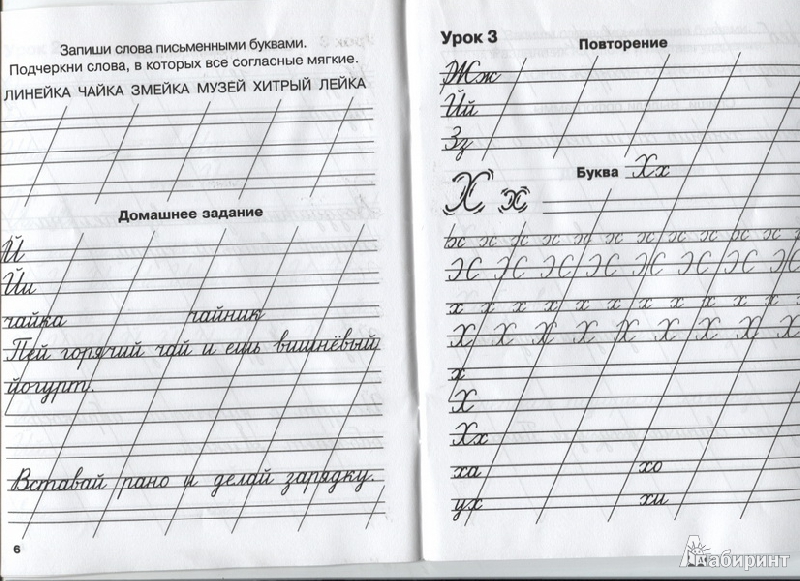 Запиши слова письменными буквами.
Подчеркни слова, в которых все согласные мягкие.
ЛИНЕЙКА ЧАЙКА ЗМЕЙКА МУЗЕЙ ХИТРЫЙ ЛЕЙКА
Домашнее задание
Й
Йй
чайка чайник
Пей горячий чай и ешь вишнёвый
йогурт.
Вставай рано и делай зарядку.
6
Урок 3
Повторение
Жж
Йй
Зз
Буква Хх
Х х
х х х х х х х х х
Х Х Х Х Х Х Х Х
х х х х х х х х х
Х Х Х Х Х Х Х Х
х
Х
Хх
ха хо
ух хи
Лабиринт